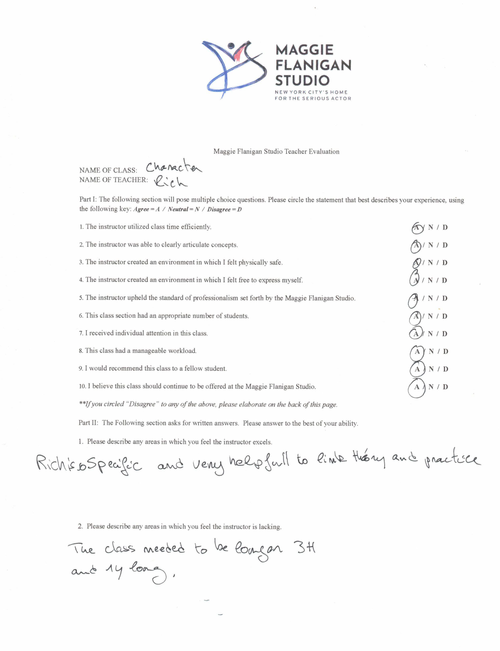 MAGGIE
FLANIGAN
STUDIO
NEW YORK CITY'S HOME
FOR THE SERIOUS ACTOR
Maggie Flanigan Studio Teacher Evaluation
NAME OF CLASS: Character
NAME OF TEACHER: Rich
Part I: The following section will pose multiple choice questions. Please circle the statement that best describes your experience, using
the following key: Agree = A / Neutral = N / Disagree = D
1. The instructor utilized class time efficiently. A / N / D
2. The instructor was able to clearly articulate concepts. A / N / D
3. The instructor created an environment in which I felt physically safe. A / N / D
4. The instructor created an environment in which I felt free to express myself. A / N / D
5. The instructor upheld the standard of professionalism set forth by the Maggie Flanigan Studio. A / N / D
6. This class section had an appropriate number of students. A / N / D
7. I received individual attention in this class. A / N / D
8. This class had a manageable workload. A / N / D
9. I would recommend this class to a fellow student. A / N / D
10. I believe this class should continue to be offered at the Maggie Flanigan Studio. A / N / D
**If you circled "Disagree" to any of the above, please elaborate on the back of this page.
Part II: The Following section asks for written answers. Please answer to the best of your ability.
1. Please describe any areas in which you feel the instructor excels.
Rich is Specific and very helpfull to link theory and practice
2. Please describe any areas in which you feel the instructor is lacking.
The class needed to be longer 3H
and 1y long.